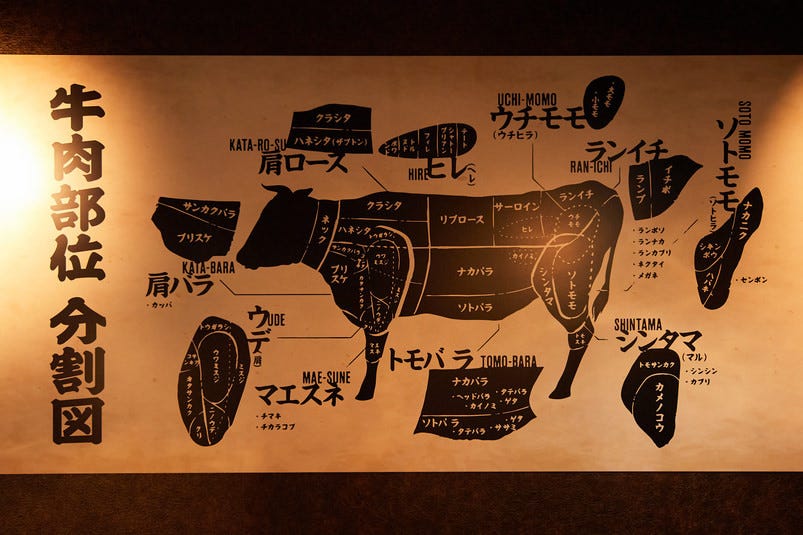 牛肉部位 分割図
クラシタ
ハネシタ(ザブトン)
KATA-RO-SU
肩ロース
テート
シャトーブリアン
フィレ
HIRE
ヒレ(ヘレ)
UCHI-MOMO
ウチモモ
(ウチヒラ)
大モモ
小モモ
RAN-ICHI
ランイチ
イチボ
ランプ
・ランボソ
・ランナカ
・ランカブリ
・ネクタイ
・メガネ
SOTO MOMO
ソトモモ
(ソトヒラ)
ナカニク
シキンボウ
ハバキ
・センボン
サンカクバラ
ブリスケ
KATA-BARA
肩バラ
・カッパ
ネック
クラシタ
ハネシタ
トウガラシ
サンカクバラ
ブリスケ
ウワミスジ
マエスネ
リブロース
サーロイン
ヒレ
カイノミ
ナカバラ
ソトバラ
ランイチ
ウチモモ
シンタマ
ソトモモ
トモスネ
UDE
ウデ(肩)
トウガラシ
ウワミスジ
ミスジ
サンカク
ニノウデ
クリ
MAE-SUNE
マエスネ
・チマキ
・チカラコブ
トモバラ
TOMO-BARA
ナカバラ
・ヘッドバラ
・タテバラ
・カイノミ
・ゲタ
ソトバラ
・ゲタ
・タテバラ
・ササミ
SHINTAMA
シンタマ
(マル)
・シンシン
・カブリ
トモサンカク
カメノコウ